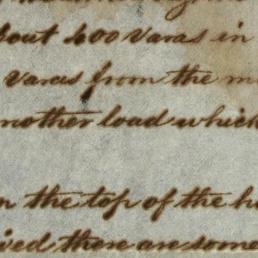 bout 400 varas in
varas from the m
nother load which
n the top of the h
ived there are some